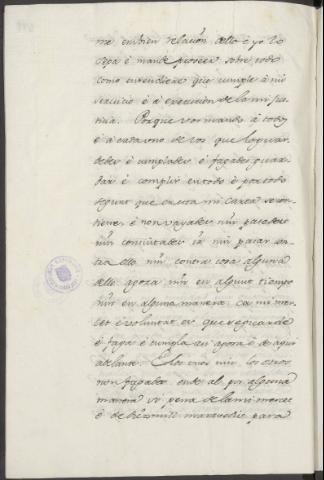 me embien relaçion dello é yo lo
sepa é mande proveer sobre todo
como entendiere que cumple á mi
servicio é á execucion de la mi jus
ticia. Porque vos mando á todos
é á cada uno de vos que lo guar
dedes é cumplades é fagades guar
dar é complir en todo é por todo
segunt que en esta mi carta se con
tiene, é non vayades nin pasedes
nin consintades ir nin pasar con
tra ello nin contra cosa alguna
dello agora nin en algunt tiempo
nin en alguna manera. ca mi mer
cet é voluntat es que se guarde
é faga é cumpla asi agora é de aqui
adelante. E los unos nin los otros
non fagades ende al por alguna
manera so pena de la mi mercet
é de diez mill maravedis para